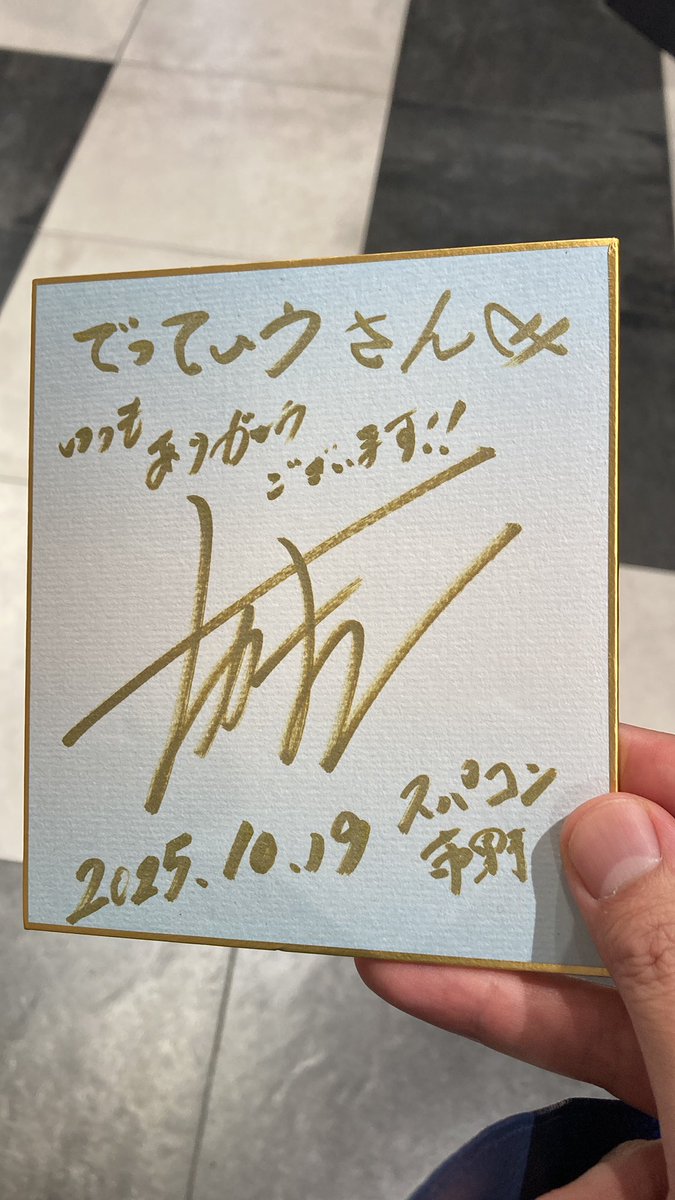 でってぃウさんへ
いつも
ありがとう
ございます!!
2025.10.19
スパコン
市野